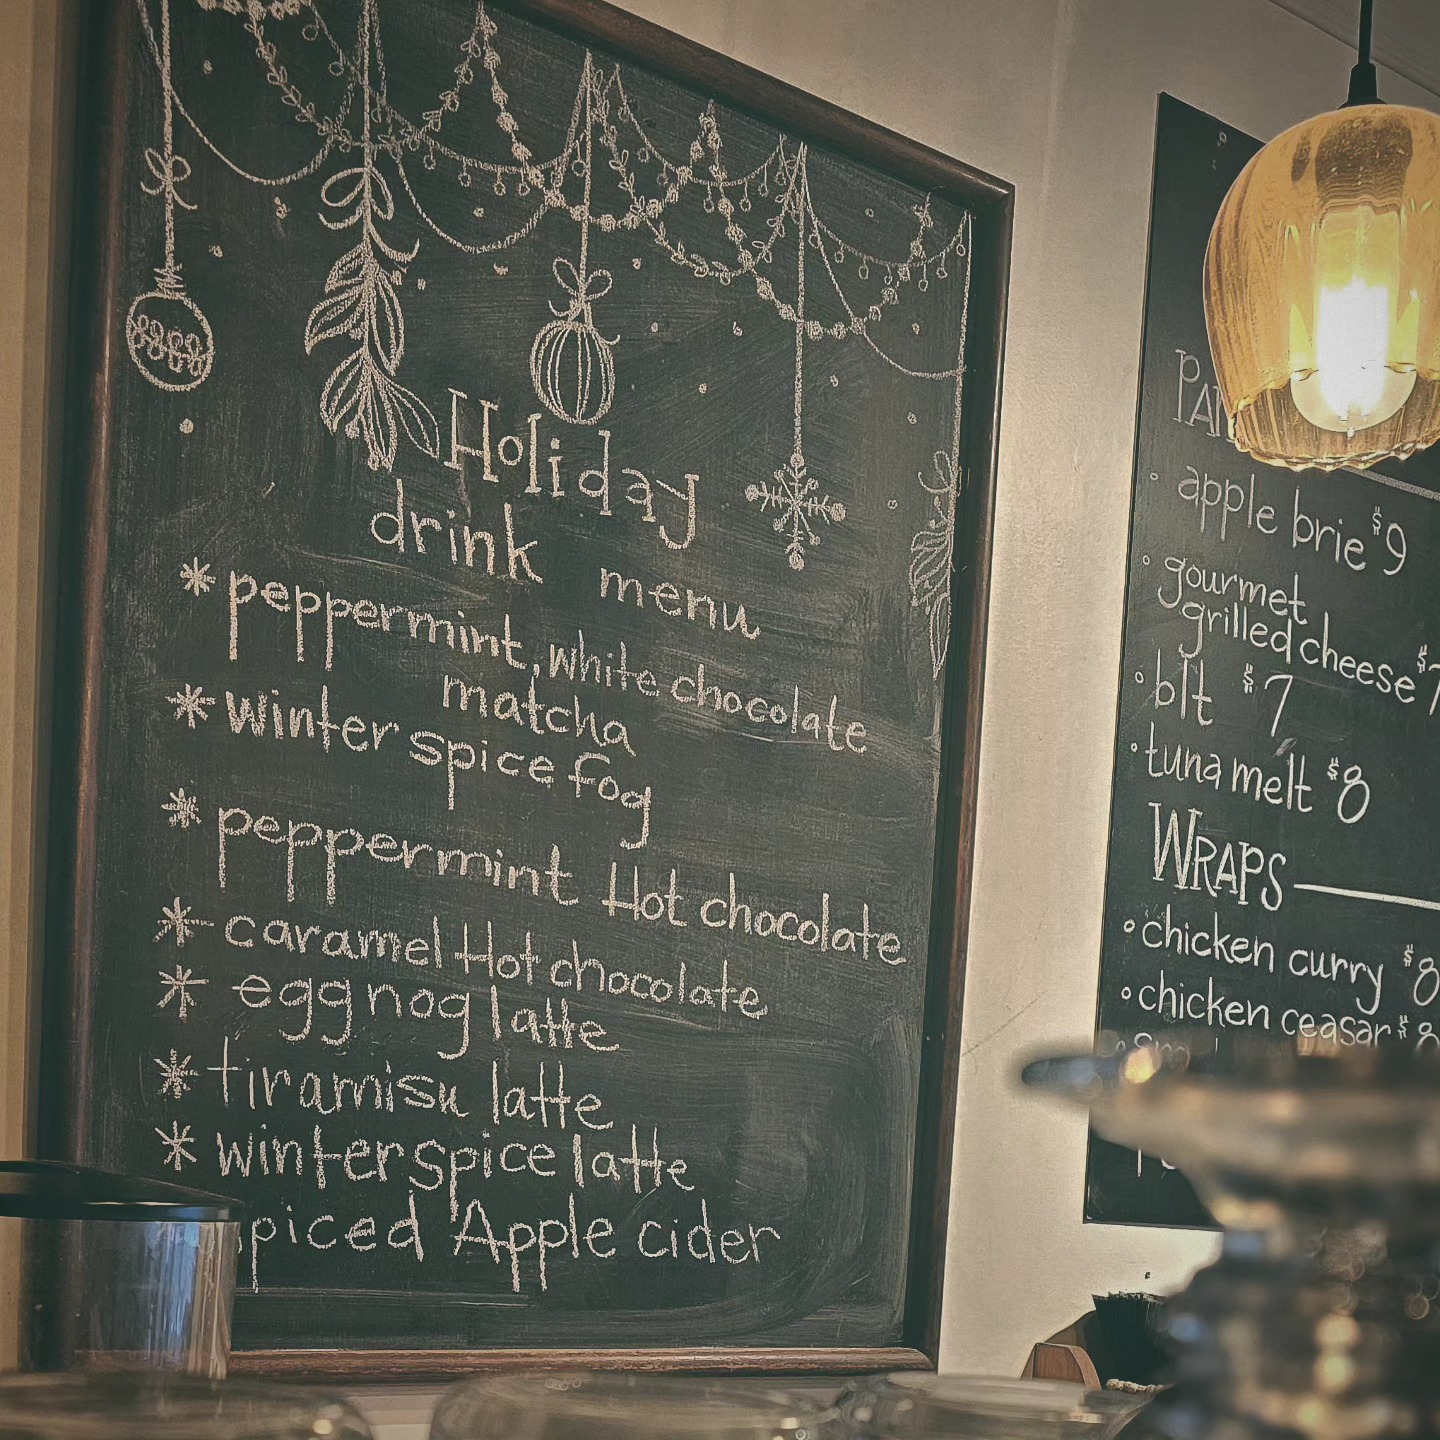 Holiday
drink menu
* peppermint, white chocolate
matcha
* winter spice fog
* peppermint Hot chocolate
* caramel Hot chocolate
* egg nog latte
* tiramisu latte
* winter spice latte
Apple cider
• apple brie $9
• gourmet
grilled cheese $7
• blt $7
• tuna melt $8
WRAPS
• chicken curry $8
• chicken ceasar $8